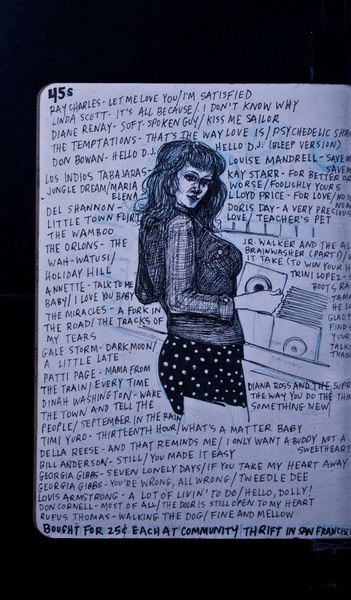 45s
RAY CHARLES - LET ME LOVE YOU/I'M SATISFIED
LINDA SCOTT - IT'S ALL BECAUSE/I DON'T KNOW WHY
DIANE RENAY - SOFT-SPOKEN GUY/KISS ME SAILOR
THE TEMPTATIONS - THAT'S THE WAY LOVE IS/PSYCHEDELIC SHA
DON BOWAN - HELLO D.J. HELLO D.J. (BLEEP VERSION)
LOS INDIOS TABAJARAS -
JUNGLE DREAM/MARIA
ELENA
DEL SHANNON -
LITTLE TOWN FLIRT
THE WAMBOO
THE ORLONS - THE
WAH-WATUSI/
HOLIDAY HILL
ANNETTE - TALK TO ME
BABY/I LOVE YOU BABY
THE MIRACLES - A FORK IN
THE ROAD/THE TRACKS OF
MY TEARS
GALE STORM - DARK MOON/
A LITTLE LATE
PATTI PAGE - MAMA FROM
THE TRAIN/EVERY TIME
DINAH WASHINGTON - WAKE
THE TOWN AND TELL THE
PEOPLE/SEPTEMBER IN THE RAIN
LOUISE MANDRELL - SAVE M
SAVE
KAY STARR - FOR BETTER OR
WORSE/FOOLISHLY YOURS
LLOYD PRICE - FOR LOVE/NO
DORIS DAY - A VERY PRECIOUS
LOVE/TEACHER'S PET
JR. WALKER AND THE AL
BRAINWASHER (PART 1)/
IT TAKE (TO WIN YOUR H
TRINI LOPEZ -
BOOTS, RA
TAM
HE
GLADY
FIND
YOUR
TALKI
THAN
DIANA ROSS AND THE SUPR
THE WAY YOU DO THE THIN
SOMETHING NEW
TIMI YURO - THIRTEENTH HOUR/WHAT'S A MATTER BABY
DELLA REESE - AND THAT REMINDS ME/I ONLY WANT A BUDDY NOT A
SWEETHEART
BILL ANDERSON - STILL/YOU MADE IT EASY
GEORGIA GIBBS - SEVEN LONELY DAYS/IF YOU TAKE MY HEART AWAY
GEORGIA GIBBS - YOU'RE WRONG, ALL WRONG/TWEEDLE DEE
LOUIS ARMSTRONG - A LOT OF LIVIN' TO DO/HELLO, DOLLY!
DON CORNELL - MOST OF ALL/THE DOOR IS STILL OPEN TO MY HEART
RUFUS THOMAS - WALKING THE DOG/FINE AND MELLOW
BOUGHT FOR 25¢ EACH AT COMMUNITY THRIFT IN SAN FRANCISC